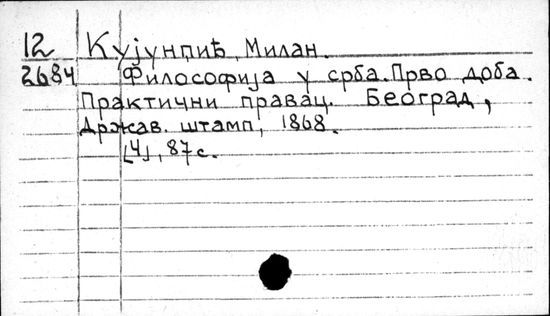 12 Кујунџић, Милан.
2684 Философија у срба. Прво доба.
Практични правац. Београд,
Држав. штамп, 1868.
[4], 87 с.